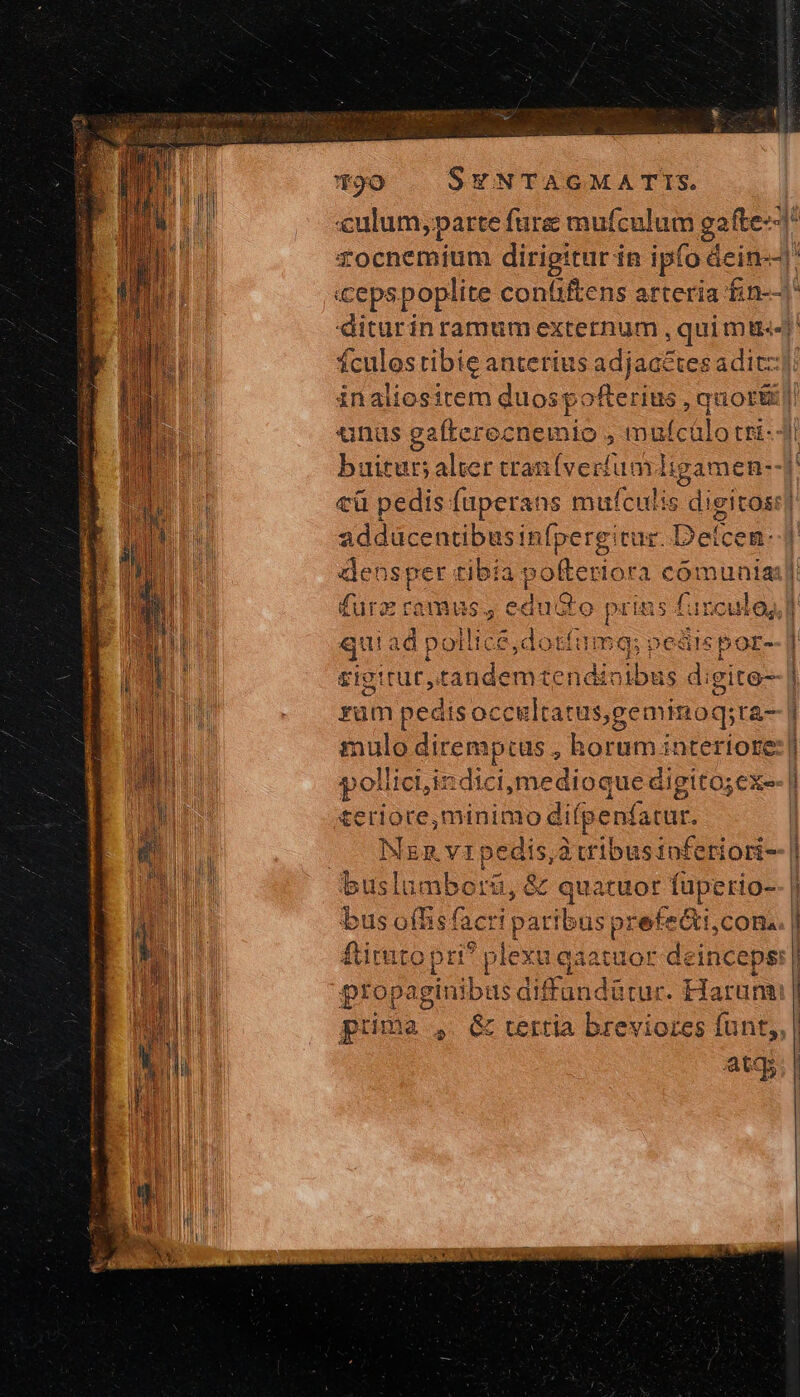 190 SYNTAGMATIS.
culum, parte suræ musculum gaste-
rocnemium dirigitur in ipso dein-
ceps poplite consistens arteria fin-
ditur in ramum externum, qui mu-
sculos tibię anterius adjacētes adit:
in alios item duos posterius, quorū
unus gasterocnemio, musculo tri-
buitur; alter transversum ligamen-
tū pedis superans musculis digitos
adducentibus inspergitur. Descen-
dens per tibia posteriora cōmunis
suræ ramus, educto prius surculo,
qui ad pollicē, dorsumq; pedis por-
rigitur, tandem tendinibus digito-
rum pedis occultatus, geminoq; ra-
mulo diremptus, horum interiore
pollici, indici, medioque digito; ex-
teriore, minimo dispensatur.
Nervi pedis, à tribus inferiori-
bus lumborū, & quatuor superio-
bus ossis sacri paribus profecti, con-
stituto pri⁹ plexu quatuor deinceps
propaginibus diffundūtur. Harum
prima, & tertia breviores sunt,
atq;